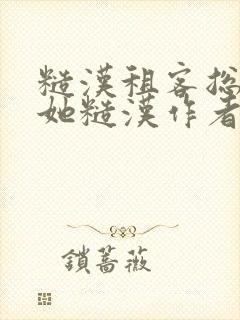 糙漢租客总
她糙漢作者
鎖薔薇